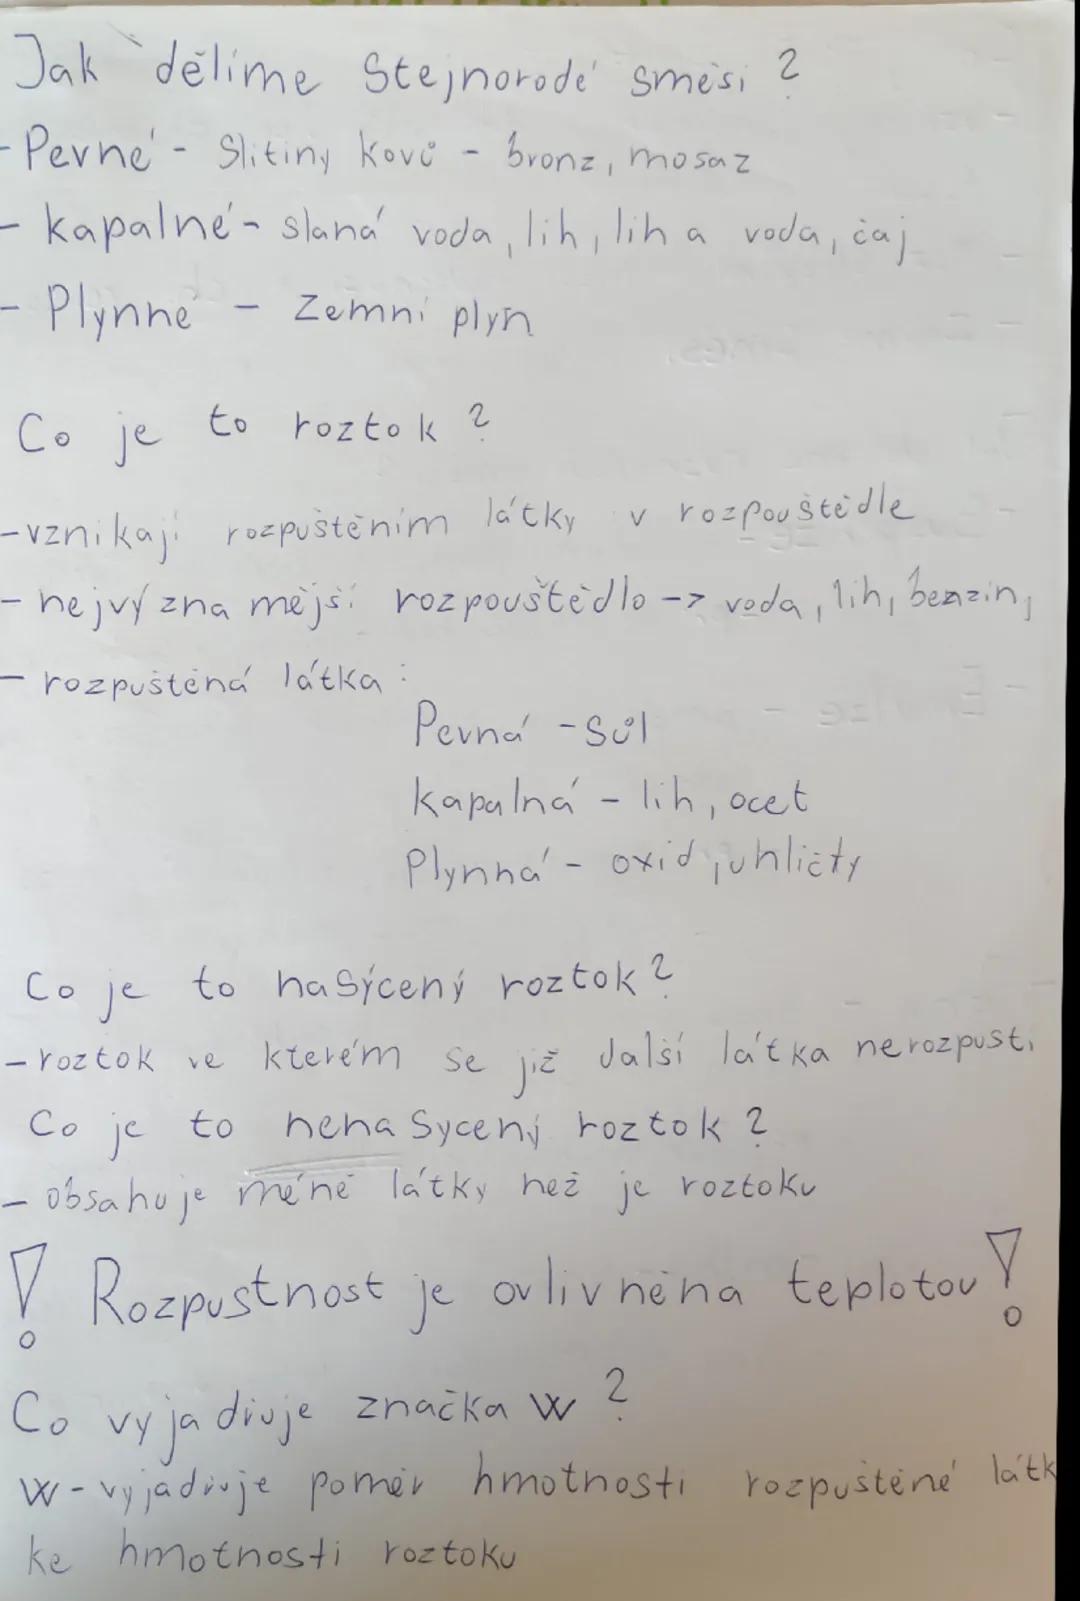 Jak dělíme Stejnorodé směsi ?
- Pevné - Slitiny kovů - bronz, mosaz
- kapalné - slaná voda, lih, lih a voda, čaj
- Plynné - Zemní plyn
Co je to roztok ?
- vznikají rozpuštěním látky v rozpouštědle
- nejvýznamější rozpouštědlo -> voda, lih, benzin,
- rozpuštěná látka :
Pevná - Sůl
kapalná - lih, ocet
Plynná - oxid, uhličty
Co je to nasýcený roztok ?
- roztok ve kterém se již další látka nerozpustí
Co je to nenasycený roztok ?
- obsahuje méně látky než je roztoku
! Rozpustnost je ovlivněna teplotou !
Co vyjadiuje značka w ?
w - vyjadiuje poměr hmotnosti rozpuštěné látk
ke hmotnosti roztoku